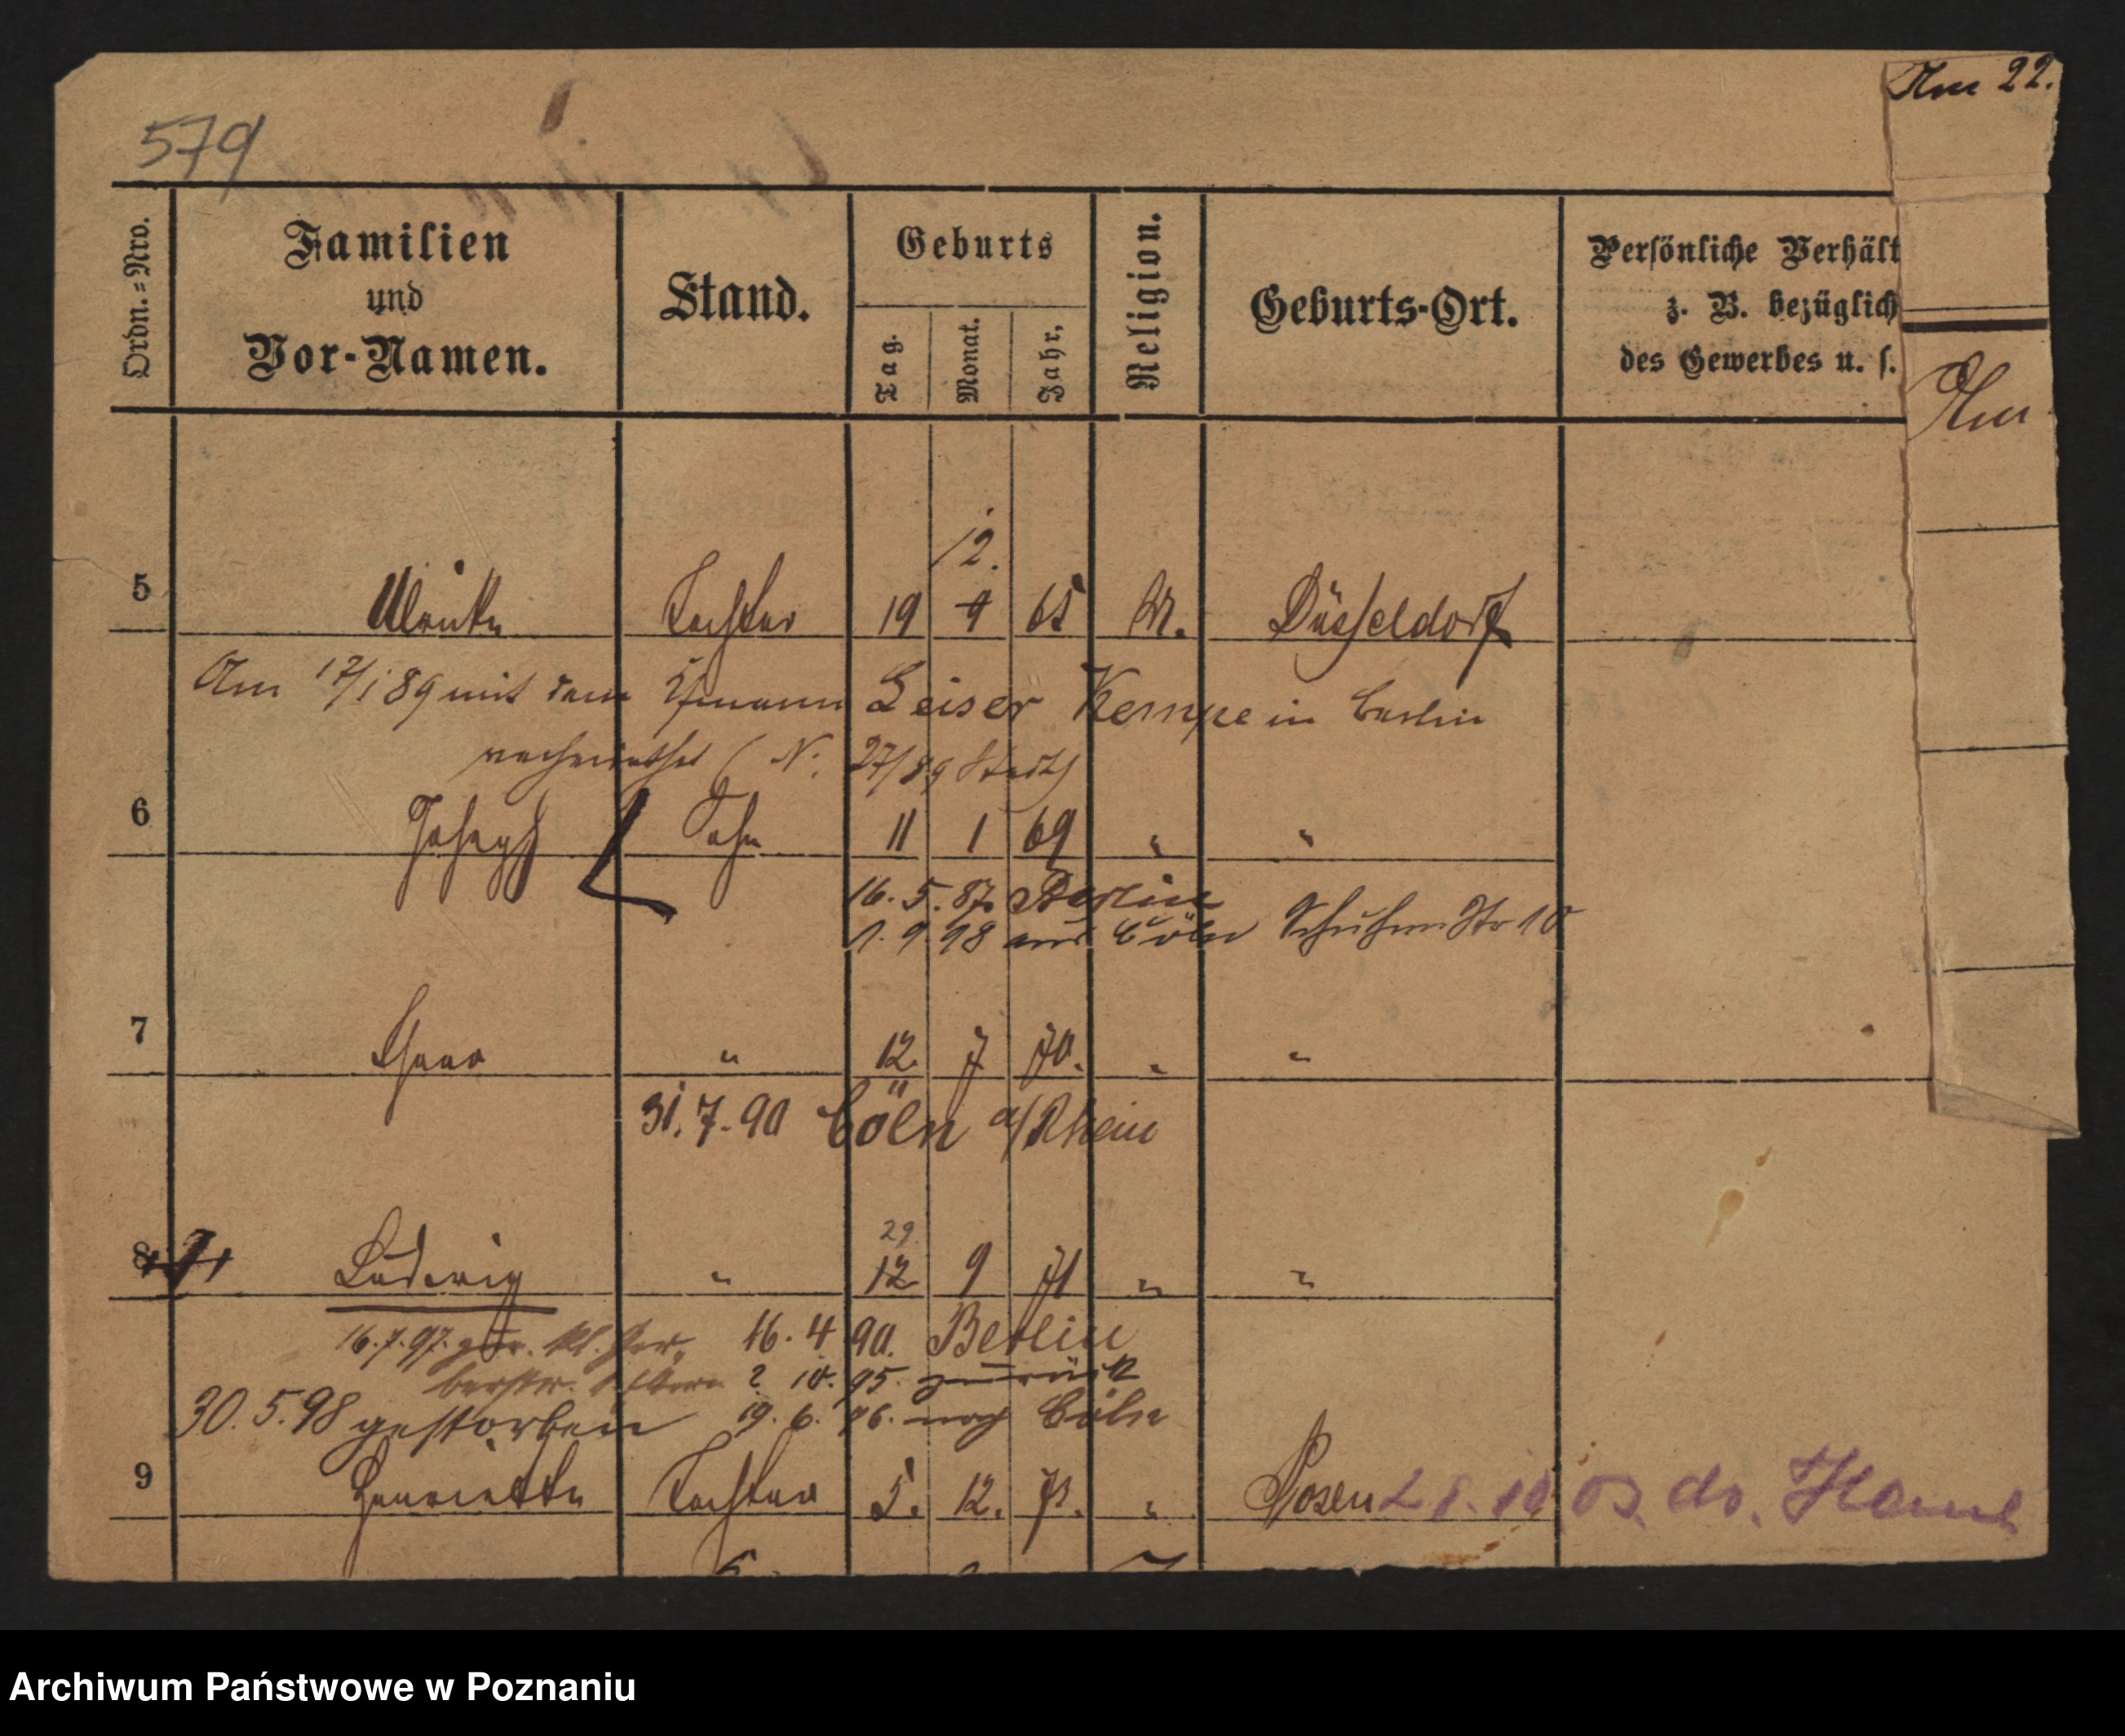 Am 22.
579
Ordn.=Nro.
Familien
und
Vor-Namen.
Stand.
Geburts
Tag.
Monat.
Jahr.
Religion.
Geburts-Ort.
Persönliche Verhält
z. B. bezüglich
des Gewerbes u. s.
Am
12.
5 Ulrike Tochter 19 9 65 M. Düsseldorf
Am 17/1 89 mit dem Leiser Kempe in Berlin
verheirathet (N. 27/89 Stadt)
6 Joseph Sohn 11 1 69 " "
16. 5. 87. Berlin
1. 9. 98 aus Cöln 10
7 " 12. 7 70. " "
31. 7. 90 Cöln a/Rhein
29
8 Ludwig " 12 9 71 " "
16. 7. 97. 16. 4 90. Berlin
2. 10. 95. zurück
30. 5. 98 gestorben 19. 6. 96. nach Cöln
9 Henriette Tochter 5. 12. 73. " Posen 28. 10 03. do.
Archiwum Państwowe w Poznaniu